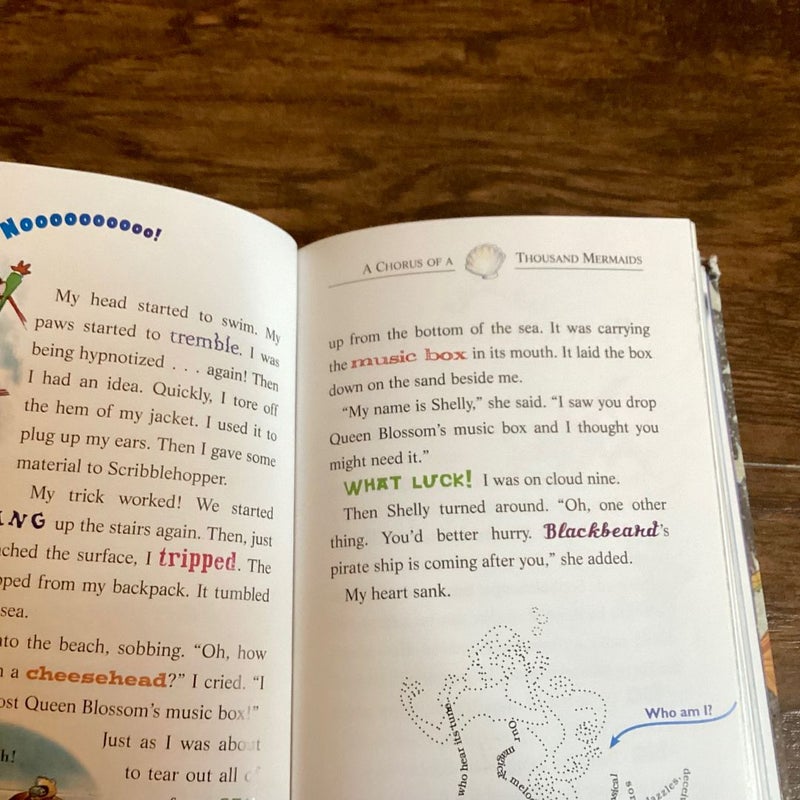 Noooooooooo!
My head started to swim. My
paws started to tremble. I was
being hypnotized . . . again! Then
I had an idea. Quickly, I tore off
the hem of my jacket. I used it to
plug up my ears. Then I gave some
material to Scribblehopper.
My trick worked! We started
up the stairs again. Then, just
the surface, I tripped. The
from my backpack. It tumbled
sea.
the beach, sobbing. “Oh, how
a cheesehead?” I cried. “I
Queen Blossom’s music box!”
Just as I was about
to tear out all
A Chorus of a Thousand Mermaids
up from the bottom of the sea. It was carrying
the music box in its mouth. It laid the box
down on the sand beside me.
“My name is Shelly,” she said. “I saw you drop
Queen Blossom’s music box and I thought you
might need it.”
WHAT LUCK! I was on cloud nine.
Then Shelly turned around. “Oh, one other
thing. You’d better hurry. Blackbeard’s
pirate ship is coming after you,” she added.
My heart sank.
Who am I?
who hear its tune
Our magical